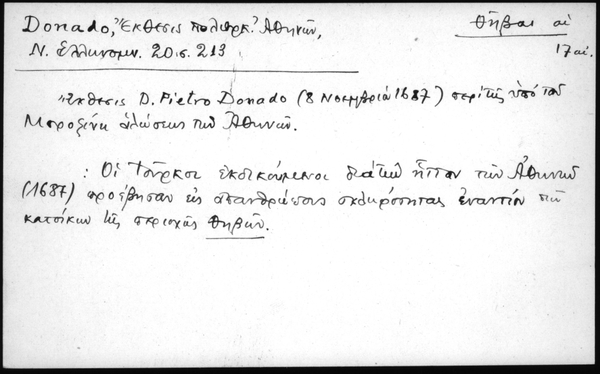 Donado, Ἔκθεσις πολιορκ. Ἀθηνῶν,
Θῆβαι αἱ
Ν. Ἑλληνομν. 20.σ. 213
17 αἰ.
Ἔκθεσις D. Pietro Donado (8 Νοεμβρίου 1687) περὶ τῆς ὑπὸ τοῦ
Μοροζίνη ἁλώσεως τῶν Ἀθηνῶν.
: Οἱ Τοῦρκοι ἐκδικούμενοι διὰ τὴν ἧτταν τῶν Ἀθηνῶν
(1687) προέβησαν εἰς ἀπανθρώπους σκληρότητας ἐναντίον τῶν
κατοίκων τῆς περιοχῆς Θηβῶν.